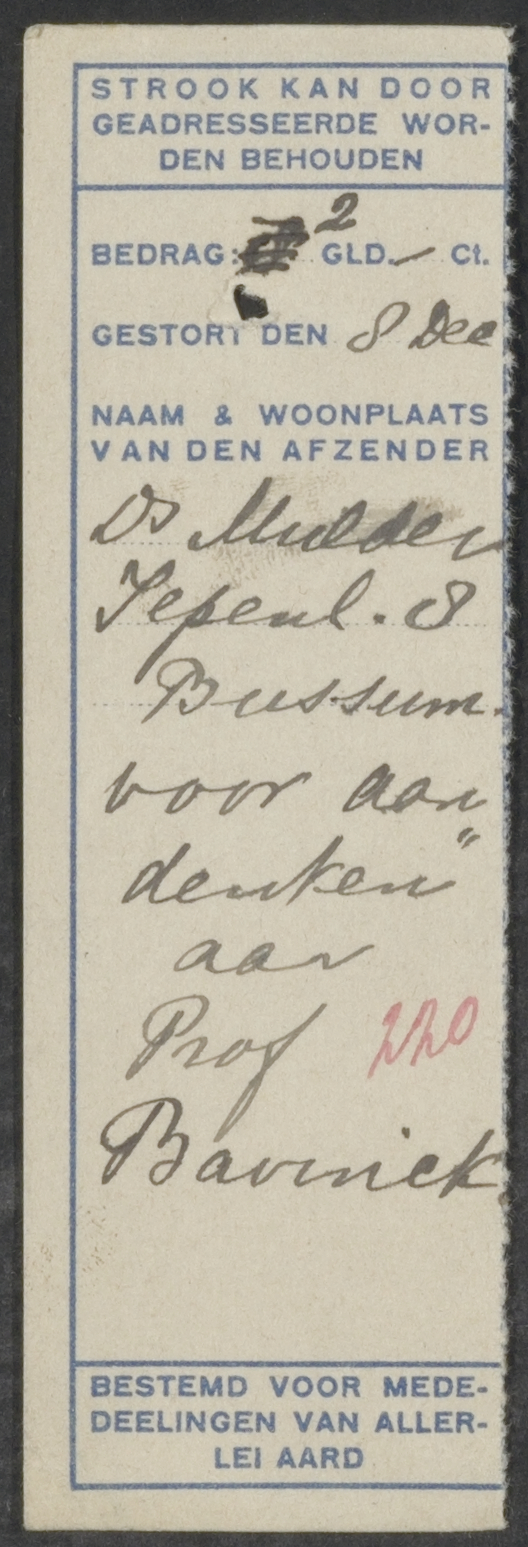 STROOK KAN DOOR
GEADRESSEERDE WOR-
DEN BEHOUDEN
BEDRAG: 2 GLD. – Ct.
GESTORT DEN 8 Dec
NAAM & WOONPLAATS
VAN DEN AFZENDER
Ds Mulder
Iepenl. 8
Bussum.
voor aan
denken"
aan
Prof 220
Bavinck.
BESTEMD VOOR MEDE-
DEELINGEN VAN ALLER-
LEI AARD